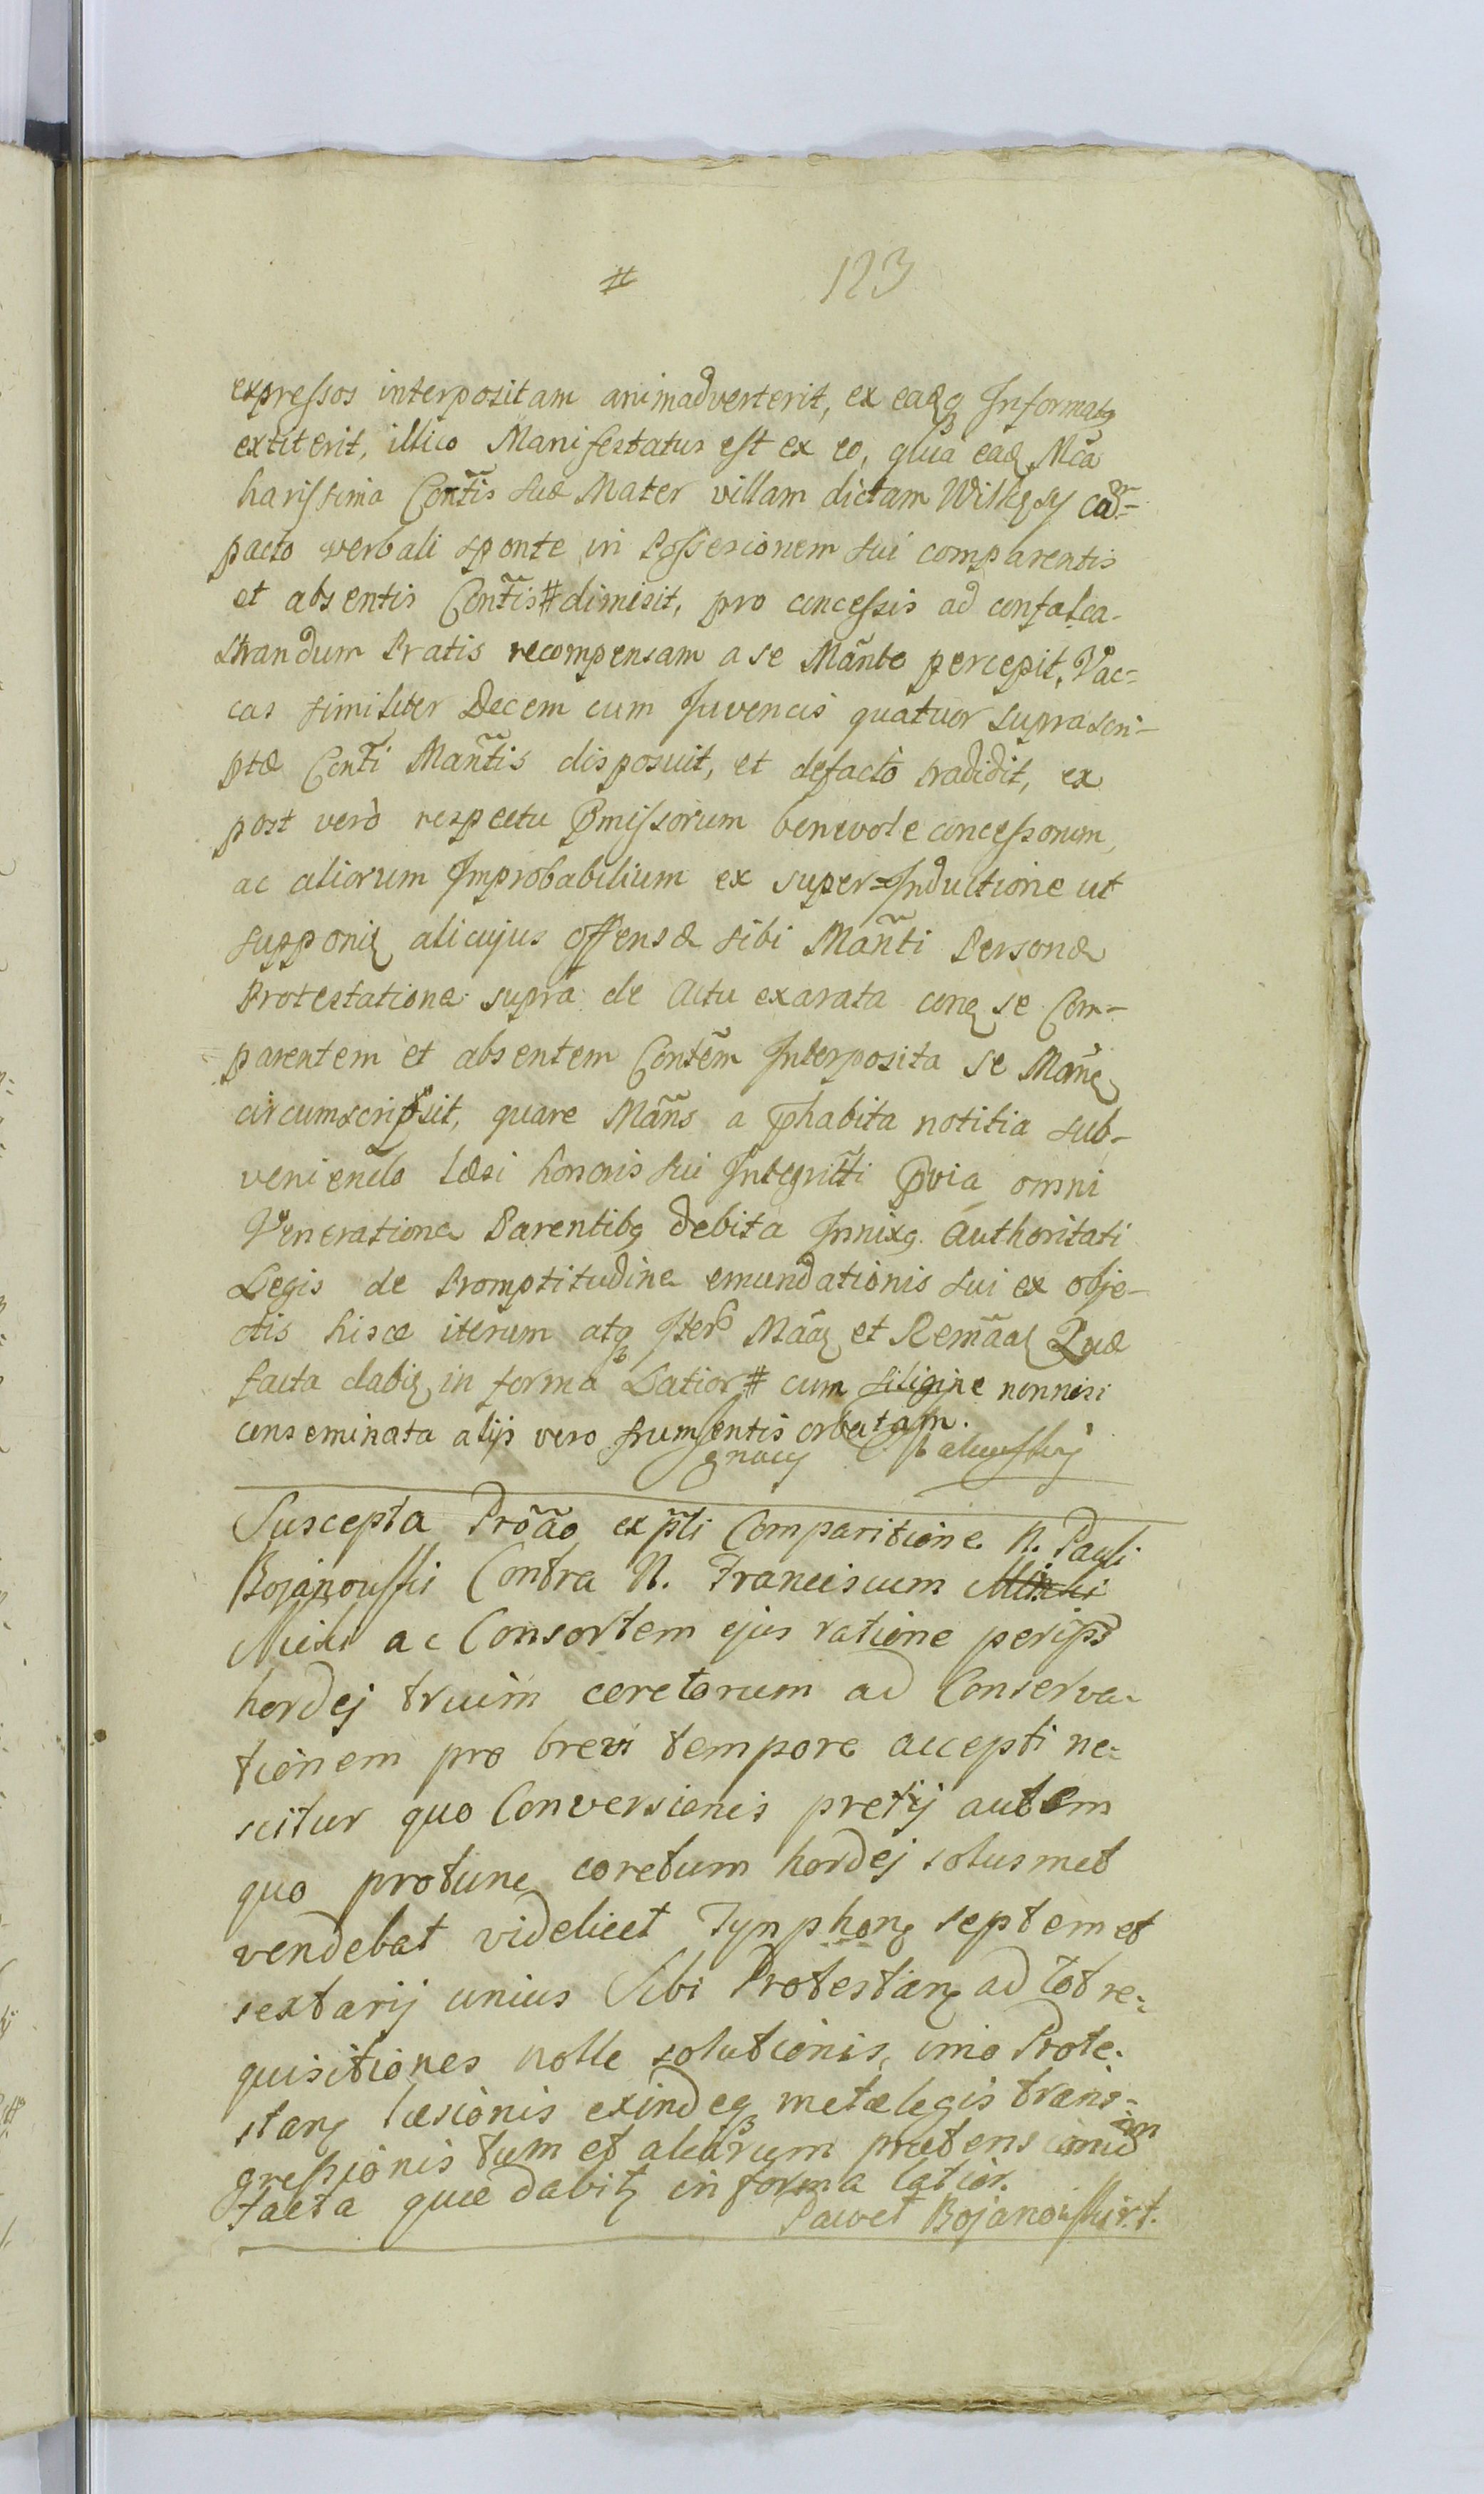 # 123
expressos interpositam animadverterit, ex eadqꝫ Informatꝯ
extiterit, illico Manifestatus est ex eo, qua ead Mca
harissima Contis suæ Mater villam dictam
pacto verbali sponte in Possesionem sui comparentis
et absentis Contis # dimisit, pro concessis ad confalca-
strandum Pratis recompensam a se Mante percepit, Vac-
cas similiter Decem cum Juvencis quatuor suprascri-
ptæ Conti Mantis disposuit, et defacto tradidit, ex
post verò respectu Pmissorum benevole concessorum,
ac aliorum Improbabilium ex super=Inductione ut
supponit alicujus offensæ sibi Manti Personæ
Protestatione supra de Actu exarata con se Com-
parentem et absentem Contem Interposita se Mane
circumscripsit, quare Mans a phabita notitia sub-
veniendo læsi honoris sui Integritti Pvia omni
Veneratione Parentibꝯ debita Innixꝯ Authoritati
Legis de Promptitudine emundationis sui ex obje-
ctis hisce iterum atqꝫ Iterò Maa et Remaa Quæ
facta dabit in forma Latior # cum siligine nonnisi
conseminata alijs vero frumentis orbatam.
Ignacy
Suscepta Proao expti Comparitione N. Pauli
Bojanouski Contra N. Franciscum
ac Consortem ejus ratione peripd
hordej trium coretorum ad Conserva-
tionem pro brevi tempore accepti ne-
scitur quo Conversionis pretij autem
quo protunc coretum hordej solusmet
vendebat videlicet Tynphon septem et
sextarij unius Sibi Protestan ad tot re-
quisitiones nolle solutionis, imo Prote-
stan læsionis exindeqꝫ metæ legis trans-
gressionis tum et aliarum prætensionum
facta quæ dabit in forma latior.
Paweł Bojanouski r.t.